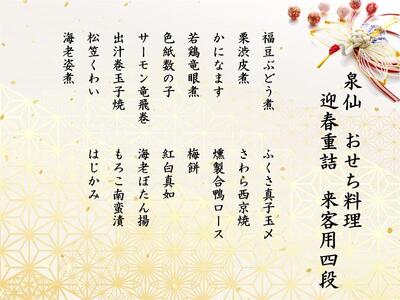 泉仙 おせち料理
迎春重詰 来客用四段
福豆ぶどう煮
栗渋皮煮
かになます
若鶏竜眼煮
色紙数の子
サーモン竜飛巻
出汁巻玉子焼
松笠くわい
海老姿煮
ふくさ真子玉〆
さわら西京焼
燻製合鴨ロース
梅餅
紅白真如
海老ぼたん揚
もろこ南蛮漬
はじかみ